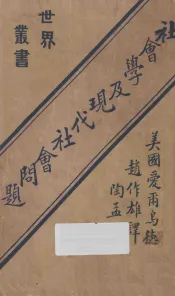 世界
叢書
社會學及現代社會問題
美國愛爾烏德
趙作雄譯
陶孟